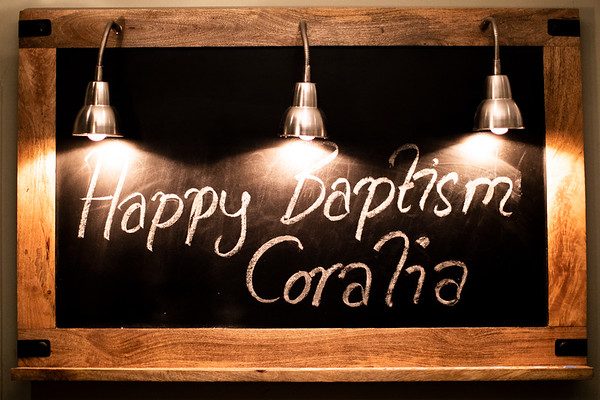 Happy Baptism
Coralia